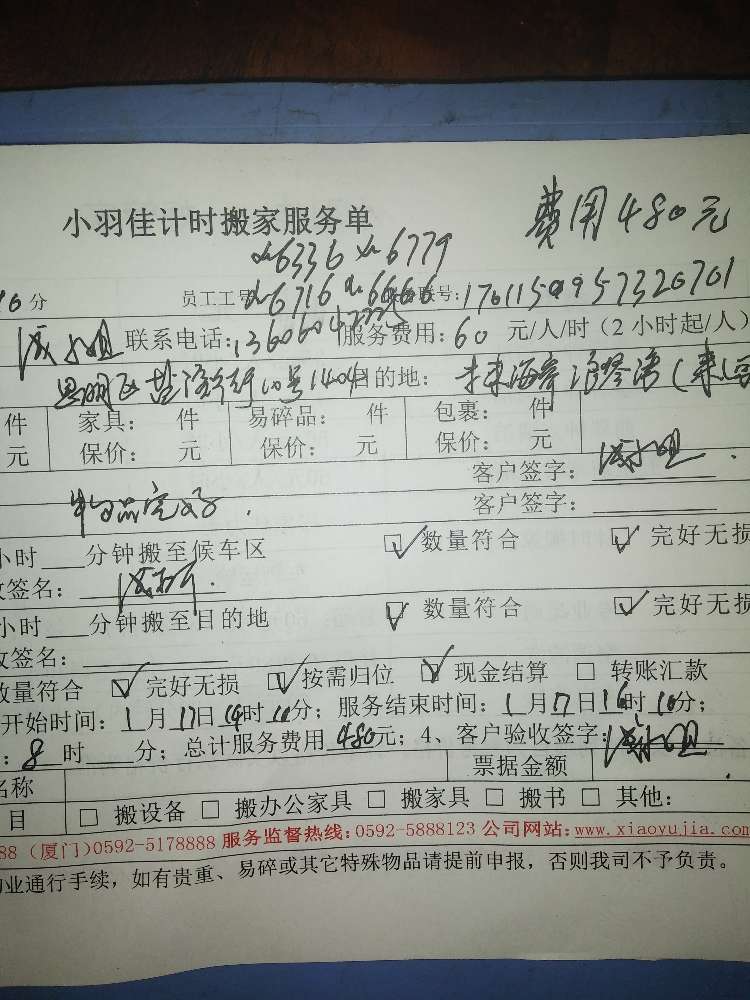 费用480元
小羽佳计时搬家服务单
xm6336 xm6779
分 员工工号: xm6716 xm6666 号:1701159957320701
联系电话: 服务费用:60 元/人/时(2小时起/人)
思明区 10号1404 目的地:
件 家具: 件 易碎品: 件 包裹: 件
元 保价: 元 保价: 元 保价: 元
客户签字:
物品完好. 客户签字:
小时 分钟搬至候车区 ☑数量符合 ☑完好无损
收签名:
小时 分钟搬至目的地 ☑数量符合 ☑完好无损
收签名:
数量符合 ☑完好无损 ☑按需归位 ☑现金结算 □转账汇款
开始时间:1月17日14时10分;服务结束时间:1月17日16时10分;
:8时 分;总计服务费用480元;4、客户验收签字:
名称 票据金额
目 □搬设备 □搬办公家具 □搬家具 □搬书 □其他:
88(厦门)0592-5178888 服务监督热线:0592-5888123 公司网站:www.xiaoyujia.com
物业通行手续,如有贵重、易碎或其它特殊物品请提前申报,否则我司不予负责。